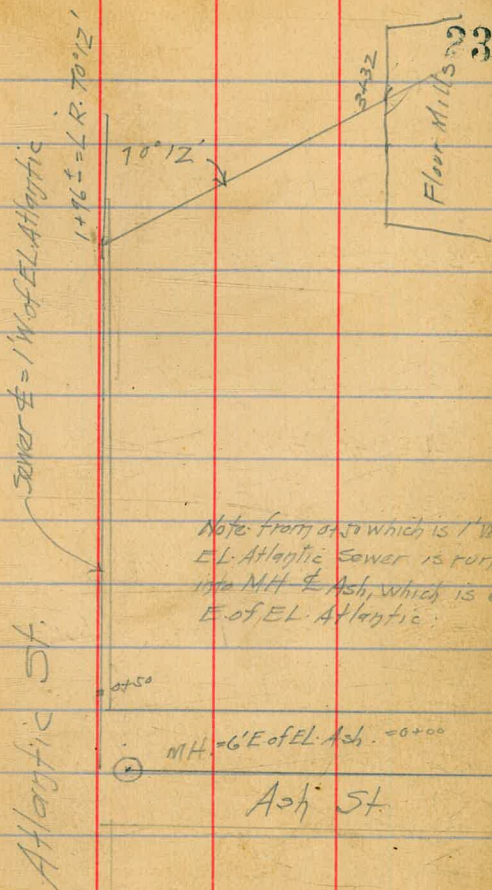 23
1+96± = L R. 70°12'
3+32
Flour Mills
70°12'
Sewer ℄ = 1' W of EL Atlantic
Note: from 0+50 which is 1' W
EL. Atlantic Sewer is run
into MH ℄ Ash, which is
E of EL. Atlantic.
0+50
MH. = 6' E of EL. Ash. = 0+00
Atlantic St.
Ash St.